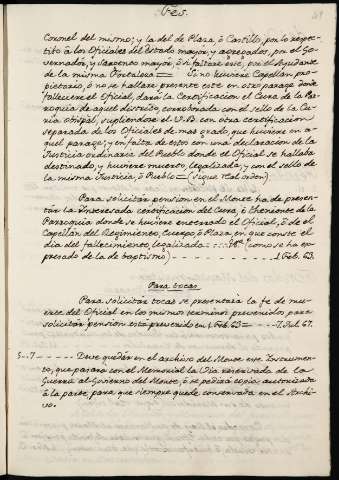 Fees.
Coronel del mismo; y la del de Plaza, ó Castillo, por lo respec-
tibo á los Oficiales del Estado mayor, y agregados, por el Go-
vernador, y Sargento mayor, ó si faltare este, por el Ayudante
de la misma Fortaleza = Si no huviere Capellan pro-
pietario, ó no se hallare presente este en otro parage donde
falleciere el Oficial, dará la Certificacion el Cura de la Par-
roquia de aquel distrito, corroborada con el sello de la Cu-
ria obispal, supliendose el V.B. con otra certificacion
separada de los Oficiales de mas grado, que huviere en a-
quel parage; y en falta de estos con una declaracion de la
Justicia ordinaria del Pueblo donde el Oficial se hallaba
destinado, y huviere muerto, legalizada, y con el sello de
la misma Justicia, ó Pueblo = (sigue tal orden)
Para solicitar pension en el Monte ha de presen-
tar la Interesada certificacion del Cura, ó theniente de la
Parroquia donde se huviere enterrado el Oficial, ó de el
Capellan del Regimiento, Cuerpo, ó Plaza, en que conste el
dia del fallecimiento, legalizada (como se ha ex-
presado de la de baptismo) - - - - - - 1. Feb. 63.
Para tocas
Para solicitar tocas se presentara la fe de mu-
erte del Oficial en los mismos terminos prevenidos para
solicitar pension esta prevenido en 1. Feb. 63 = 7. Jul. 67.
5..7 - - - - - Deve quedar en el archivo del Monte este Instrumen-
to, que pasara con el Memorial la Via reservada de la
Guerra al Govierno del Monte, ó se pedira copia autorizada
á la parte, para que siempre quede conservada en el Archi-
vo.